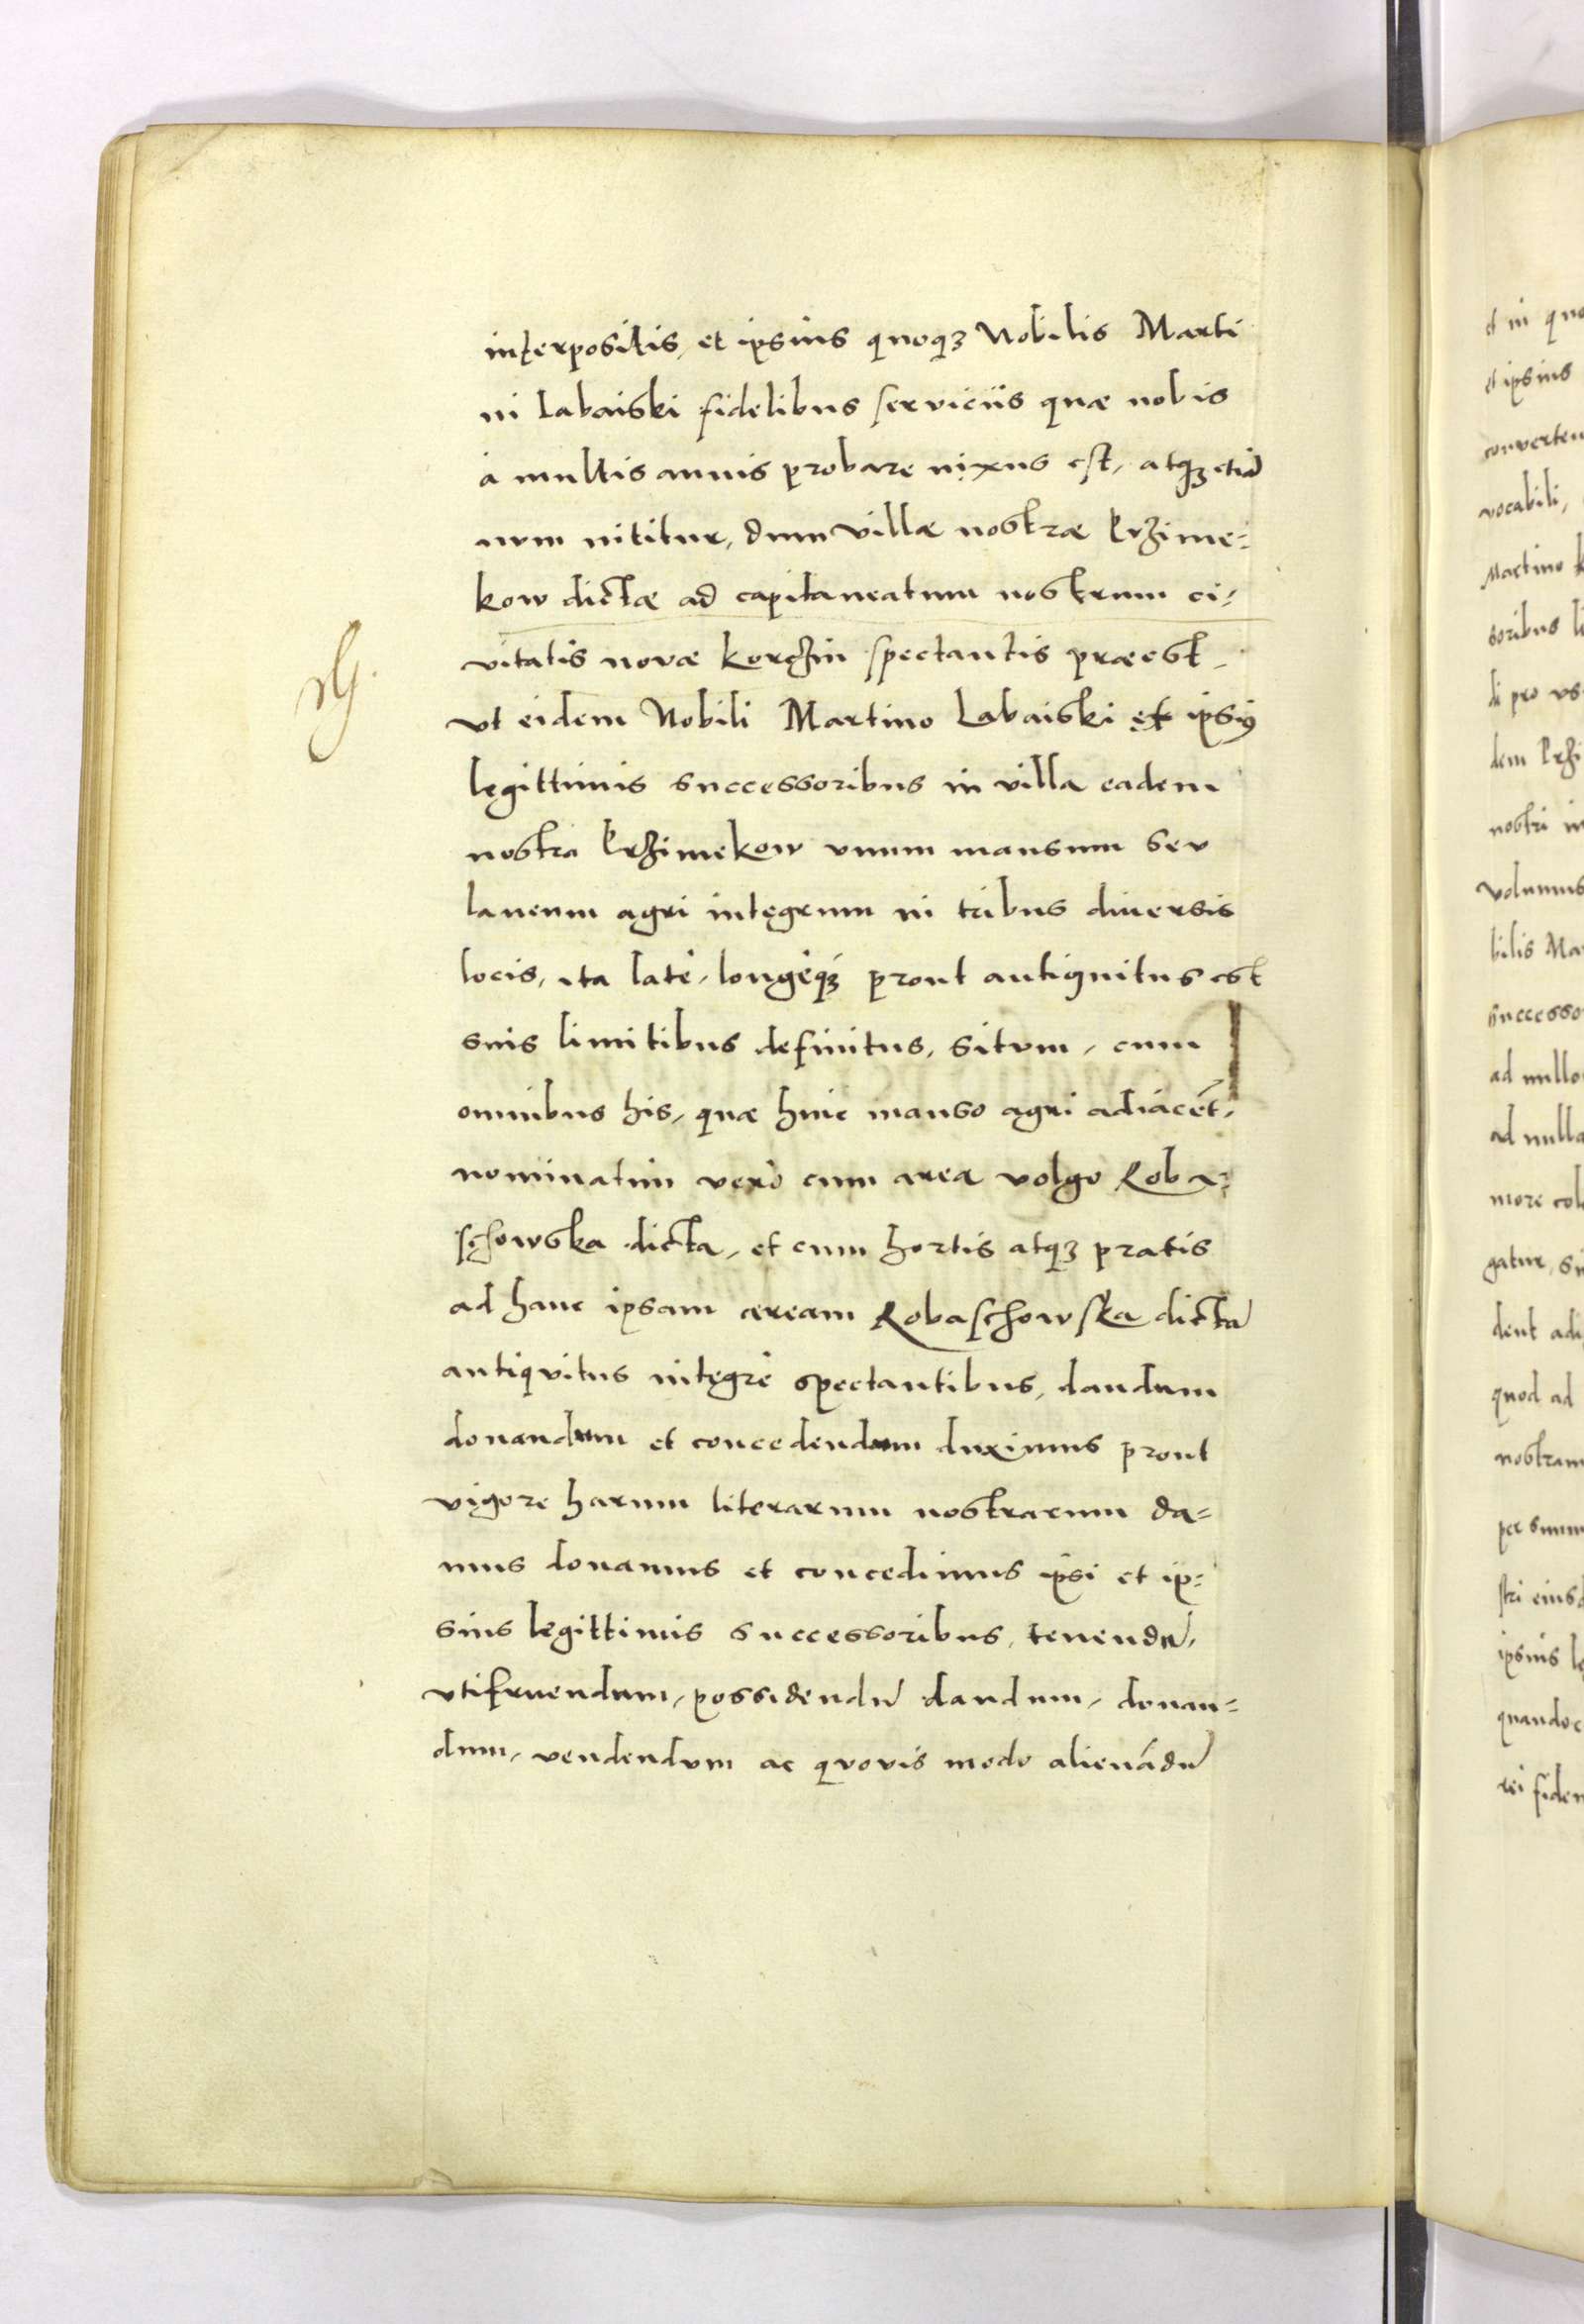 interpositis, et ipsius quoqꝫ Nobilis Marti
ni Labaiski fidelibus serviciis quæ nobis
à multis annis probare nixus est, atqꝫ etiã
nvm nititur, dum villæ nostræ Krzime=
kow dictæ ad capitaneatum nostrum ci=
vitatis novæ Korczin spectantis præest,
vt eidem Nobili Martino Labaiski et ipsiꝰ
legittimis successoribus in villa eadem
nostra Krzimekow vnum mansum sev
laneum agri integrum in tribus diversis
locis, ita latè, longèqꝫ prout antiquitus est
suis limitibus definitus, sitvm, cum
omnibus his, quæ huic manso agri adiacẽt,
nominatim verò cum area volgo Roba=
schowska dicta, et cum hortis atqꝫ pratis
ad hanc ipsam aream Robaschowska dictã
antiqvitus integrè spectantibus, dandum
donandum et concedendum duximus prout
vigore harum literarum nostrarum da=
mus donamus et concedimus ipsi et ip=
sius legittimis successoribus, tenendũ,
vtifruendum, possidendũ dandum, donan=
dum, vendendvm ac qvovis modo alienãdũ
et in quo
et ipsius
converten
vocabili,
Martino
soribus
li pro vs
dem Krzi
nostri in
volumus
bilis Ma
successo
ad nullo
ad nulla
more col
gatur, si
dent adi
quod ad
nostram
per summ
stri eius
ipsius le
quandoc
rei fiden